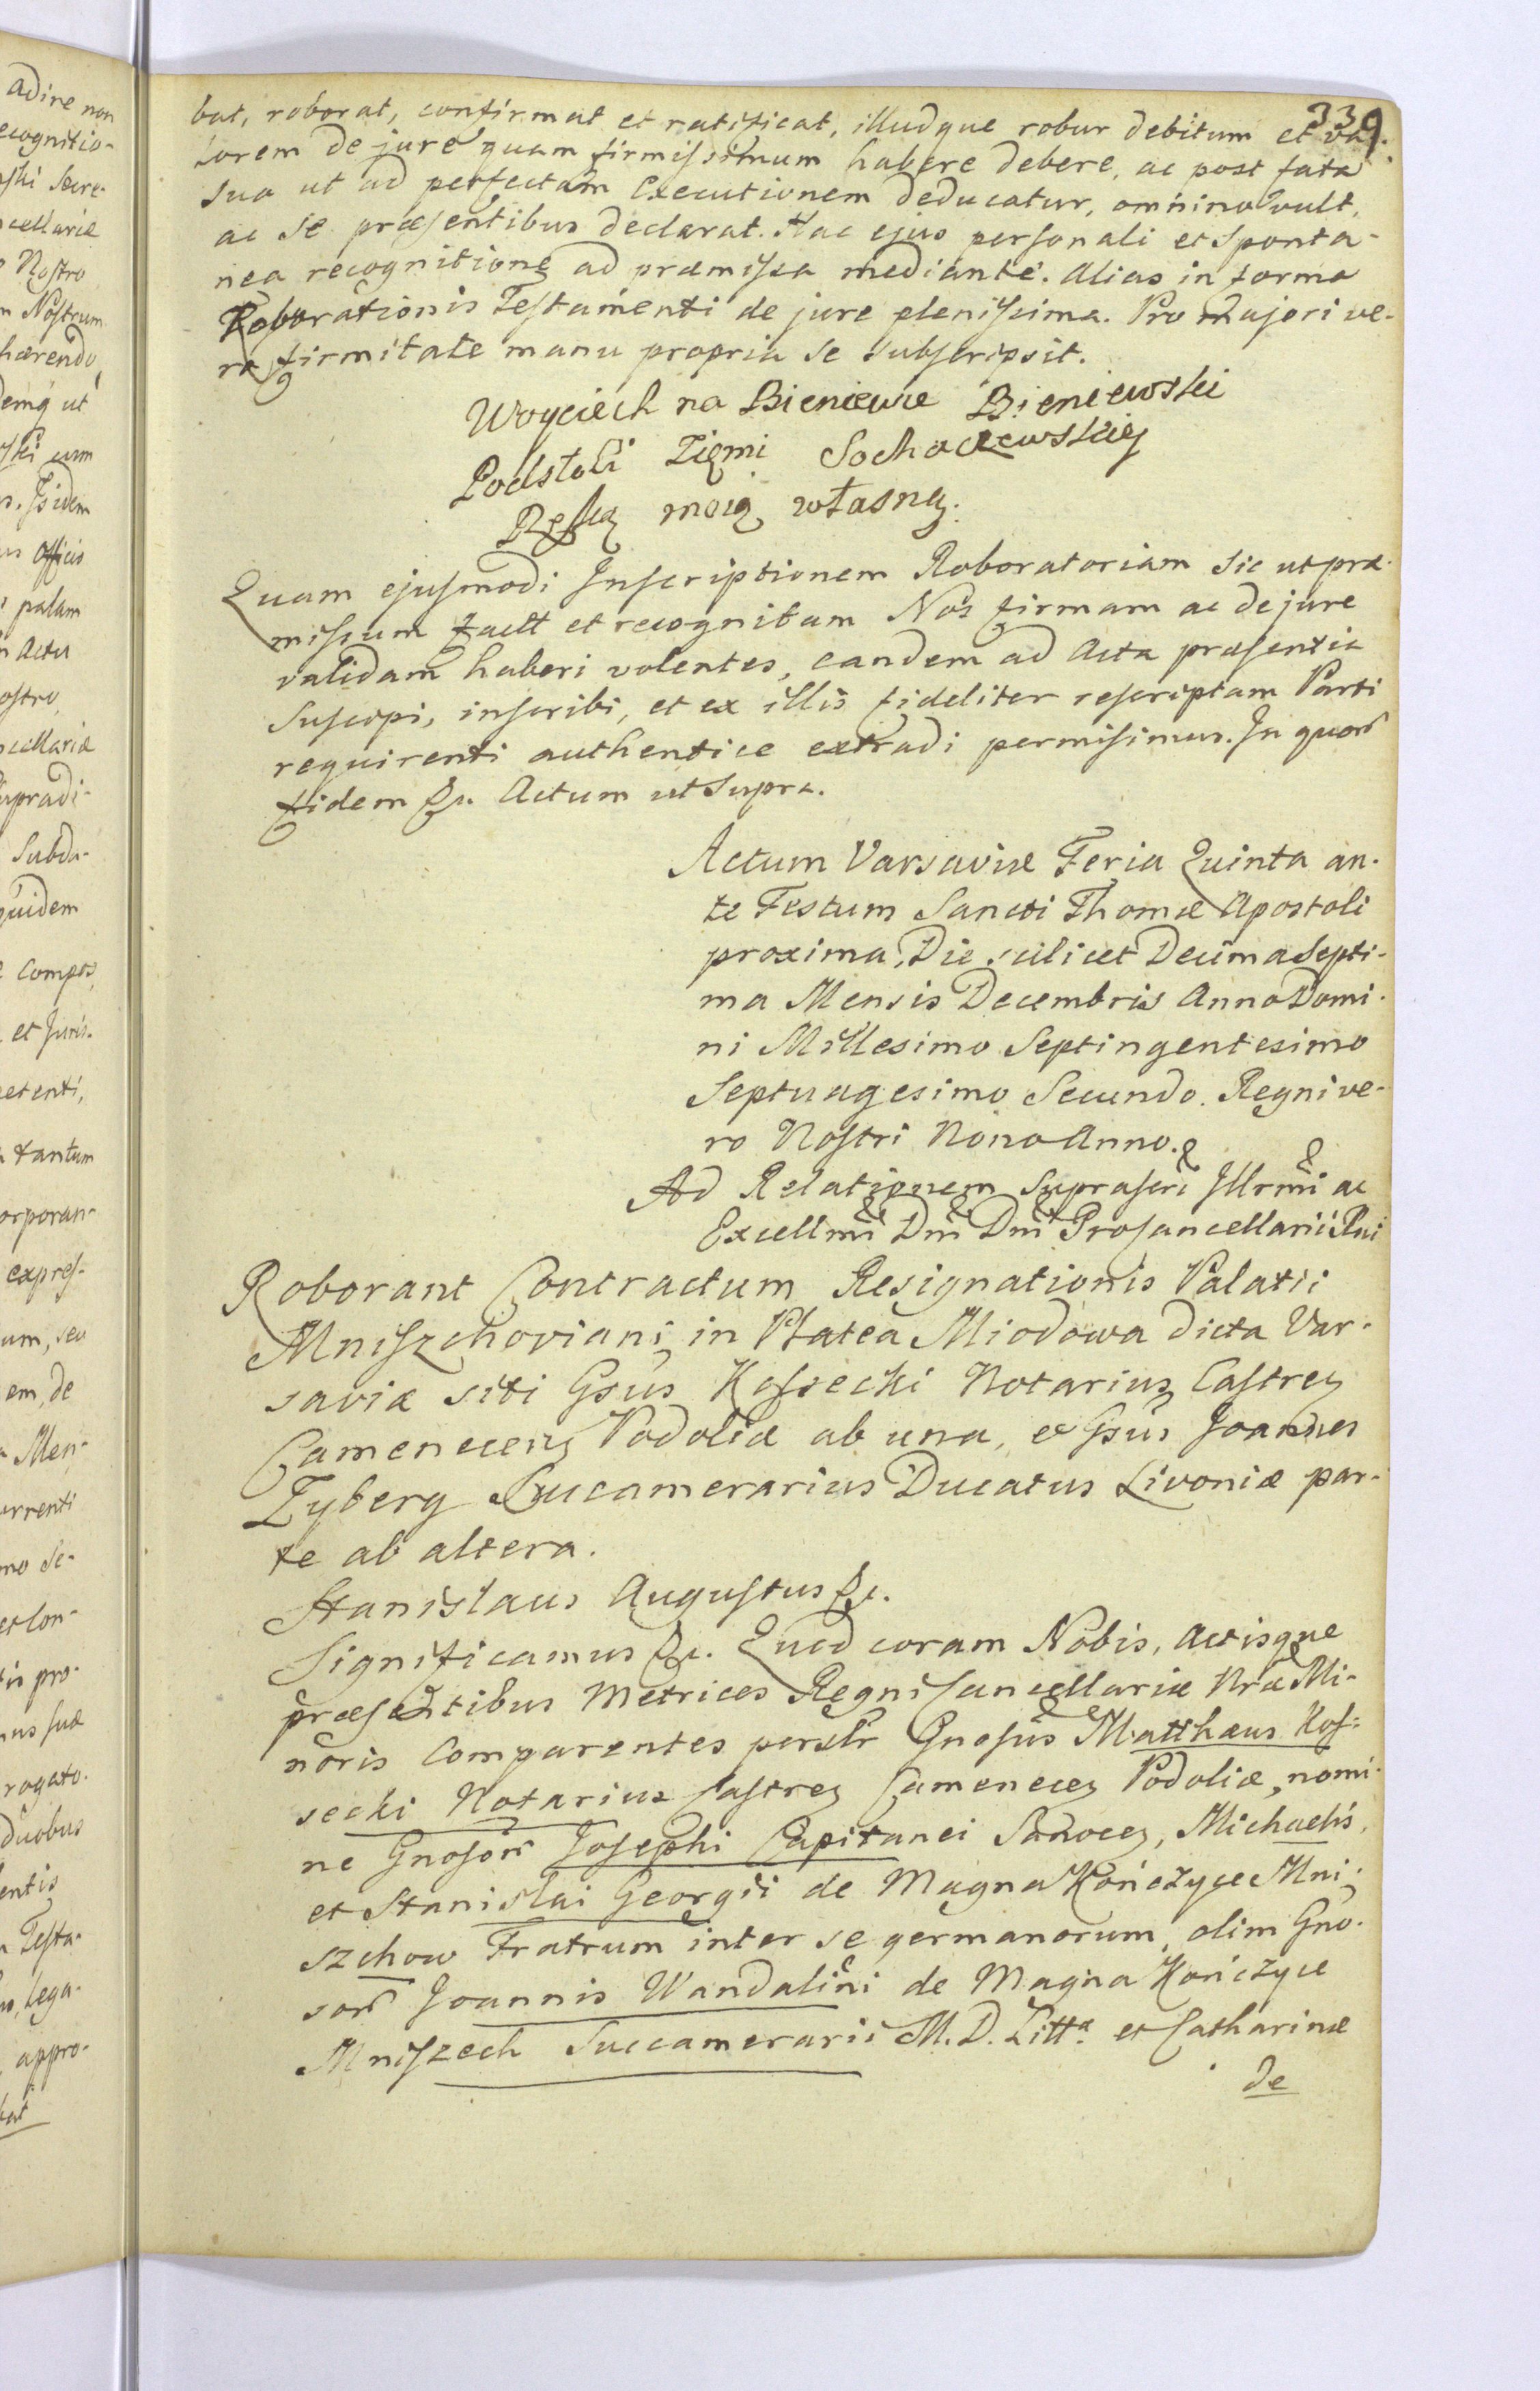 339
bat, roborat, confirmat et ratificat, illudque robur debitum et va-
lorem de jure quam firmissimum habere debere, ac post fata
sua ut ad perfectam Executionem deducatur, omnino vult,
ac se præsentibus declarat. Hac ejus personali et sponta-
nea recognitione ad præmissa mediante. Alias in forma
Roborationis Testamenti de jure plenissima. Pro majori ve-
ro firmitate manu propria se subscripsit.
Woyciech na Bieniewie Bieniewski
Podstoli Ziemi Sochaczewskiey
Ręką moią własną.
Quam ejusmodi Inscriptionem Roboratoriam sic ut præ-
missum factt et recognitam Nos firmam ac de jure
validam haberi volentes, eandem ad Acta præsentia
suscipi, inscribi, et ex illis fideliter rescriptam Parti
requirenti authentice extradi permisimus. In quor
fidem &c. Actum ut supra.
Actum Varsaviæ Feria Quinta an-
te Festum Sancti Thomæ Apostoli
proxima, Die scilicet Decima Septi-
ma Mensis Decembris Anno Domi-
ni Millesimo Septingentesimo
Septuagesimo Secundo. Regni ve-
ro Nostri Nono Anno.
Ad Relationem suprascri Illrmi ac
Excellmi Dni Dni Procancellarii Rni
Roborant Contractum Resignationis Palatii
Mniszchoviani in Platea Miodowa dicta Var-
saviæ siti Gsus Kossecki Notarius Castren
Camenecen Podoliæ ab una, et Gsus Joannes
Zyberg Succamerarius Ducatus Livoniæ par-
te ab altera.
Stanislaus Augustus &c.
Significamus &c. Quod coram Nobis, Actisque
præsentibus Metrices Regni Cancellariæ Nræ Mi-
noris Comparentes persltr Gnosus Matthæus Kos-
secki Notarius Castren Camenecen Podoliæ, nomi-
ne Gnosor Josephi Capitanei Sanocen, Michaelis,
et Stanislai Georgii de Magna Kończyce Mni-
szchow Fratrum inter se germanorum, olim Gno-
sor Joannis Wandalini de Magna Kończyce
Mniszech Succamerarii M. D. Litt. et Catharinæ
de